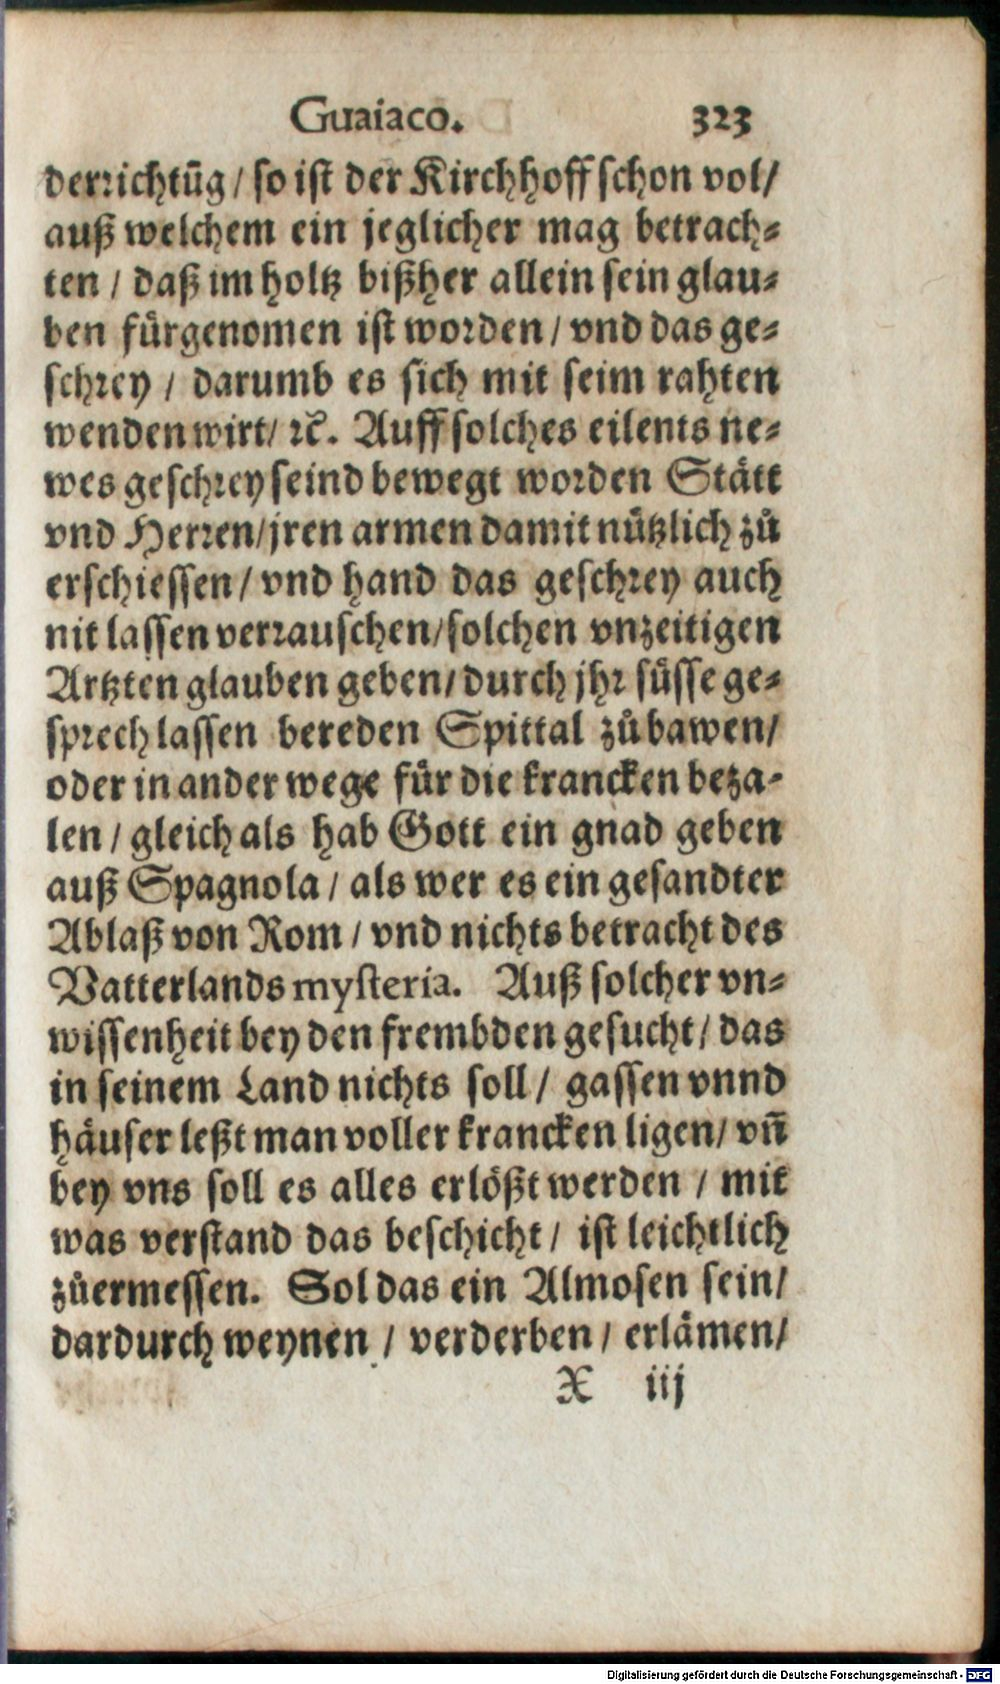 Guaiaco. 323
derrichtūg / so ist der Kirchhoff schon vol /
auß welchem ein jeglicher mag betrach-
ten / daß im holtz bißher allein sein glau-
ben fürgenomen ist worden / vnd das ge-
schrey / darumb es sich mit seim rahten
wenden wirt / ꝛc̄. Auff solches eilents ne-
wes geschrey seind bewegt worden Stätt
vnd Herren / jren armen damit nützlich zů
erschiessen / vnd hand das geschrey auch
nit lassen verrauschen / solchen vnzeitigen
Artzten glauben geben / durch jhr süsse ge-
sprech lassen bereden Spittal zů bawen /
oder in ander wege für die krancken beza-
len / gleich als hab Gott ein gnad geben
auß Spagnola / als wer es ein gesandter
Ablaß von Rom / vnd nichts betracht des
Vatterlands mysteria. Auß solcher vn-
wissenheit bey den frembden gesucht / das
in seinem Land nichts soll / gassen vnnd
häuser leßt man voller krancken ligen / vn̄
bey vns soll es alles erlößt werden / mit
was verstand das beschicht / ist leichtlich
zůermessen. Sol das ein Almosen sein /
dardurch weynen / verderben / erlämen /
X iij
Digitalisierung gefördert durch die Deutsche Forschungsgemeinschaft - DFG